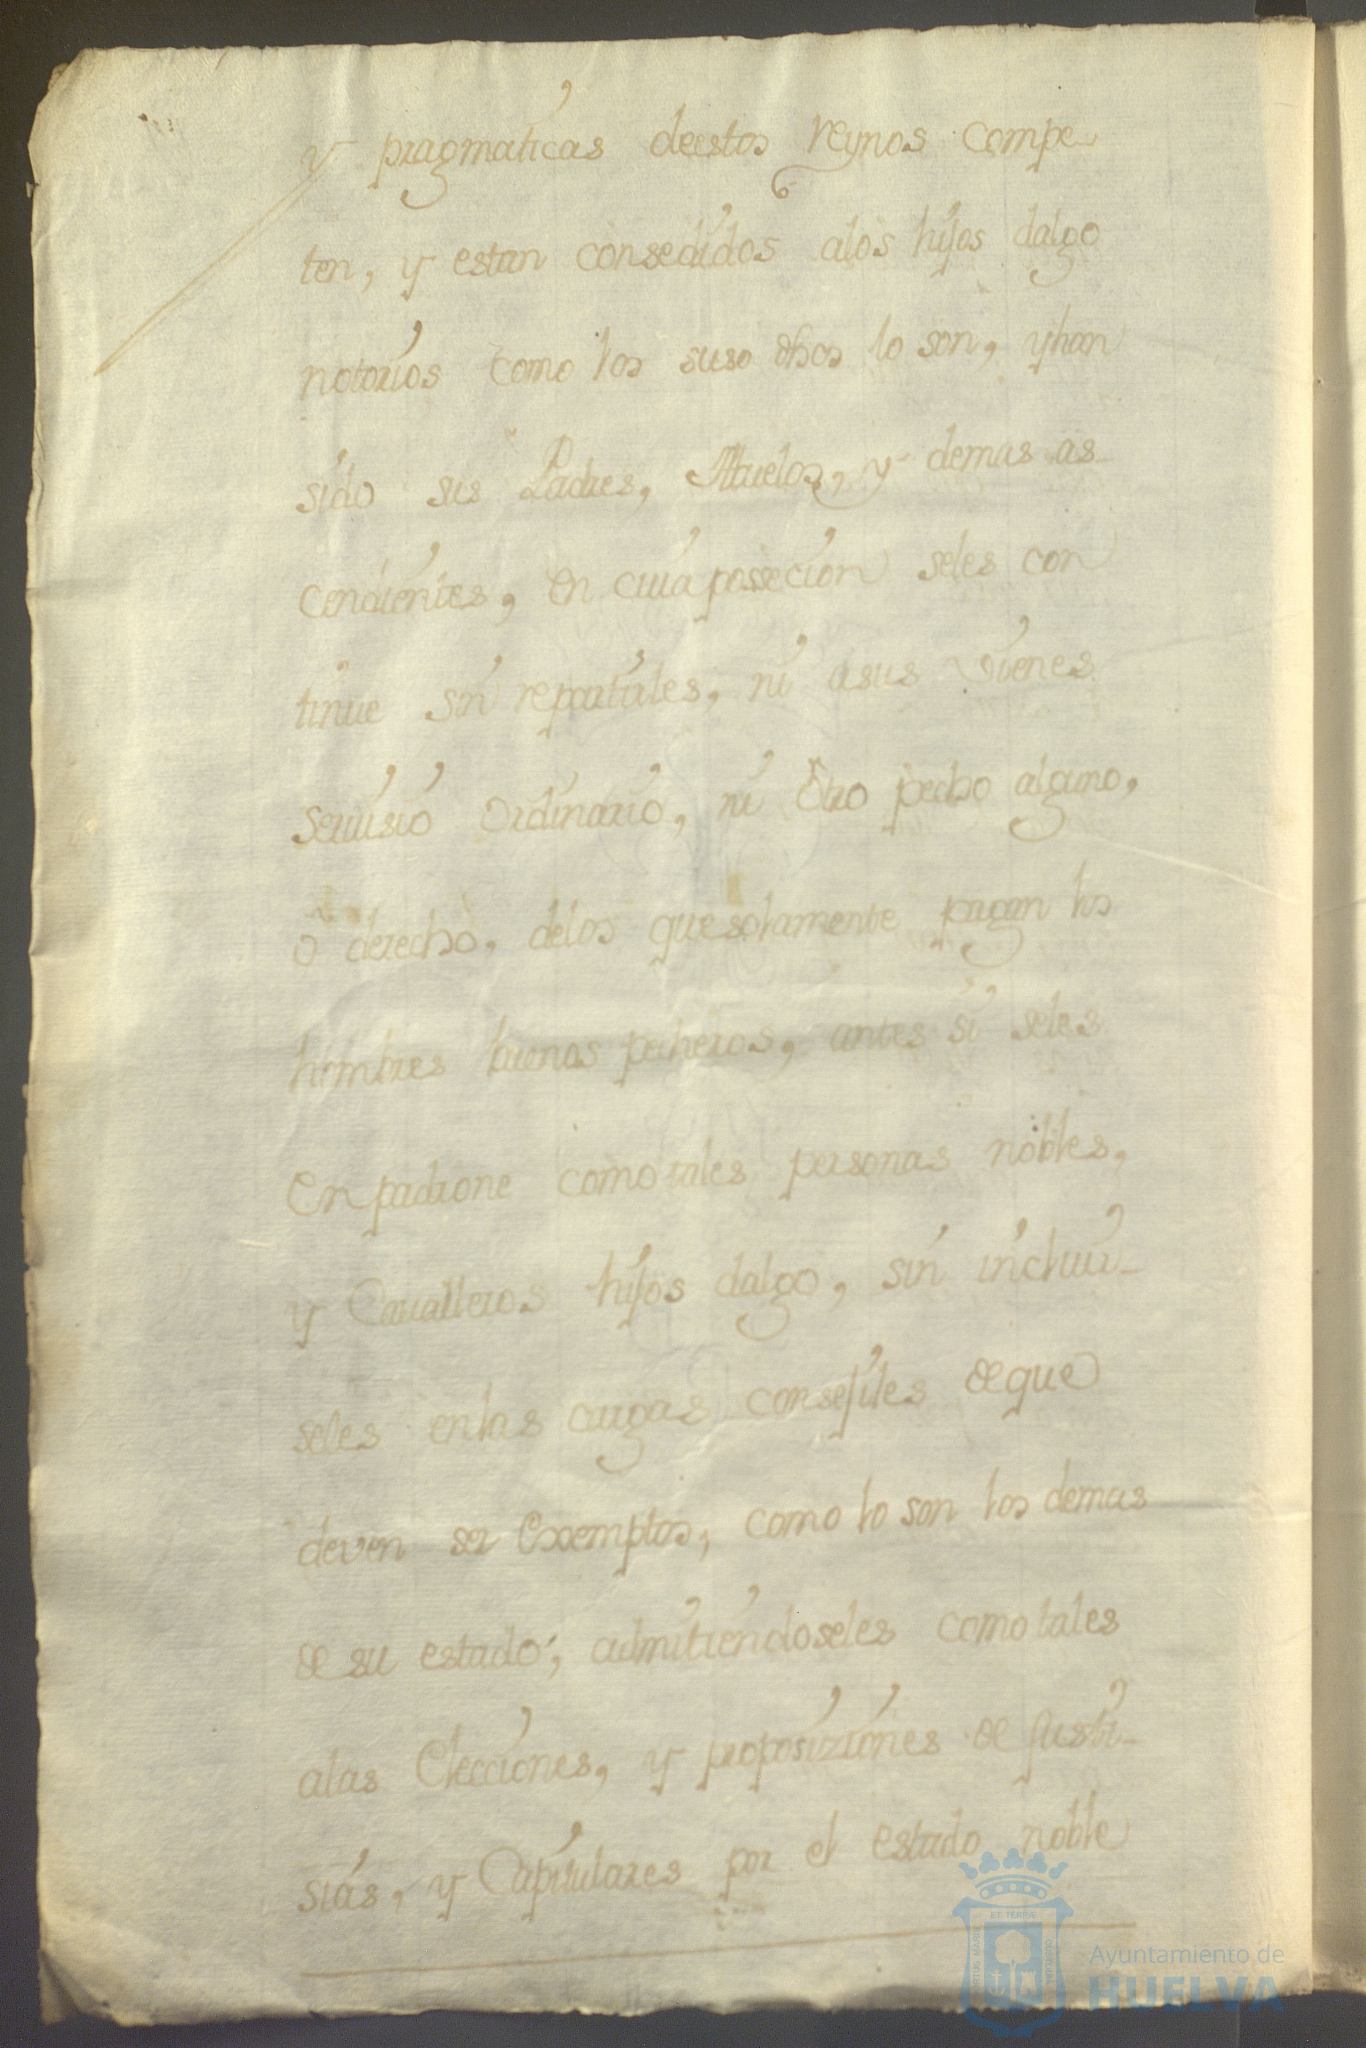 y pragmaticas deestos Reynos compe-
ten, y estan consedidos alos hijos dalgo
notorios como los suso dhos lo son, y han
sido sus Padres, Abuelos, y demas as-
cendientes, en cuia possecion seles con
tinue sin repartirles, ni asus vienes
servisio ordinario, ni otro pecho alguno,
o derecho, delos que solamente pagan los
hombres buenos pecheros, antes si seles
Enpadrone como tales personas nobles,
y Cavalleros hijos dalgo, sin incluir-
seles enlas cargas consejiles de que
deven ser Exemptos, como lo son los demas
de su estado; admitiendoseles como tales
alas Elecciones, y proposiziones de Justi-
sias, y Capitulares por el estado noble
Ayuntamiento de
HUELVA